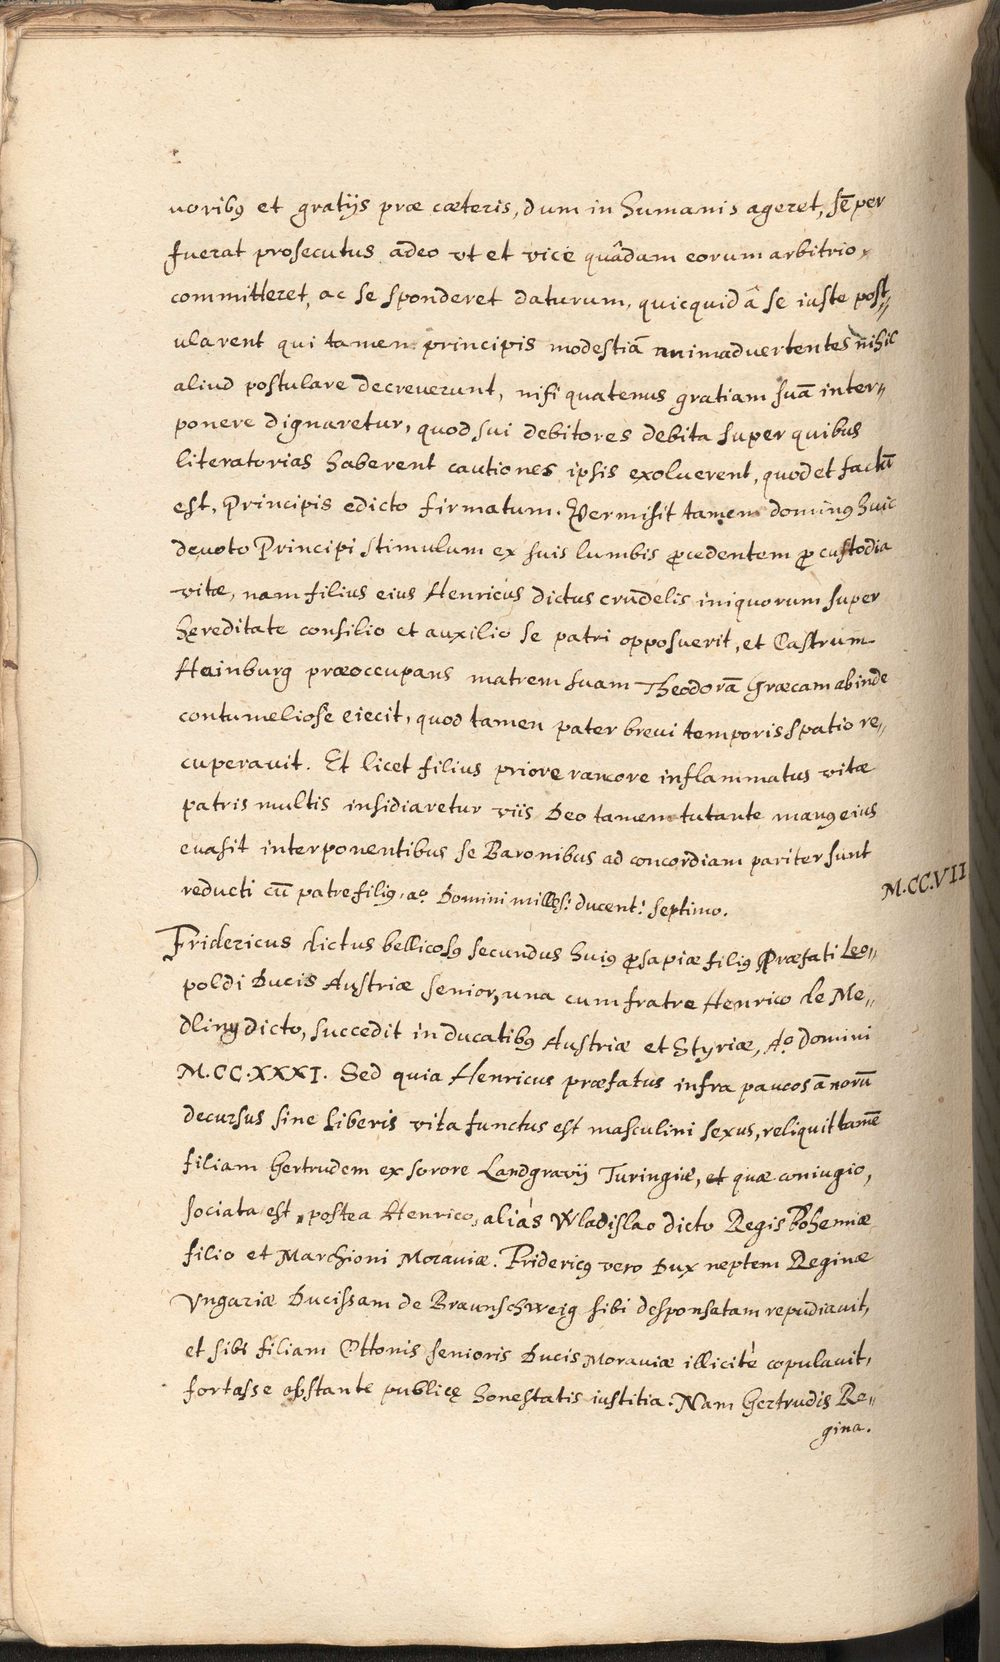 uoribꝰ et gratijs præ cæteris, dum in humanis ageret, sēper
fuerat prosecutus adeo vt et vice quâdam eorum arbitrio
committeret, ac se sponderet daturum, quicquid â se iuste post„
ularent qui tamen principis modestiā animaduertentes nihil
aliud postulare decreuerunt, nisi quatenus gratiam suā inter„
ponere dignaretur, quod sui debitores debita super quibus
literatorias haberent cautiones ipsis exoluerent, quod et factū
est, Principis edicto firmatum. Permisit tamen dominꝰ huic
deuoto Principi stimulum ex suis lumbis ꝓcedentem ꝓ custodia
vitæ, nam filius eius Henricus dictus crudelis iniquorum super
hęreditate consilio et auxilio se patri opposuerit, et Castrum
Hainburg præoccupans matrem suam Theodorā Græcam abinde
contumeliose eiecit, quod tamen pater breui temporis spatio re„
cuperauit. Et licet filius priore rancore inflammatus vitæ
patris multis insidiaretur viis Deo tamen tutante manꝰ eius
euasit interponentibus se Baronibus ad concordiam pariter sunt
reducti cū patre filiꝰ, aº Domini millęs: ducent: septimo.
M.CC.VII
Fridericus dictus bellicosꝰ secundus huiꝰ ꝓsapiæ filiꝰ Præfati Leo„
poldi Ducis Austriæ senior, una cum fratre Henrico de Me„
dling dicto, succedit in ducatibꝰ Austriæ et Styriæ, Aº Domini
M.CC.XXXI. Sed quia Henricus præfatus infra paucos ānorū
decursus sine liberis vita functus est masculini sexus, reliquit tamē
filiam Gertrudem ex sorore Landgravij Turingiæ, et quæ coniugio,
sociata est, postea Henrico, aliàs Wladislao dicto Regis Bohemiæ
filio et Marchioni Morauiæ. Fridericꝰ vero Dux neptem Reginæ
Vngariæ Ducissam de Braunschweig sibi desponsatam repudiauit,
et sibi filiam Ottonis senioris Ducis Morauiæ illicitè copulauit,
fortasse obstante publicę honestatis iustitia. Nam Gertrudis Re„
gina.